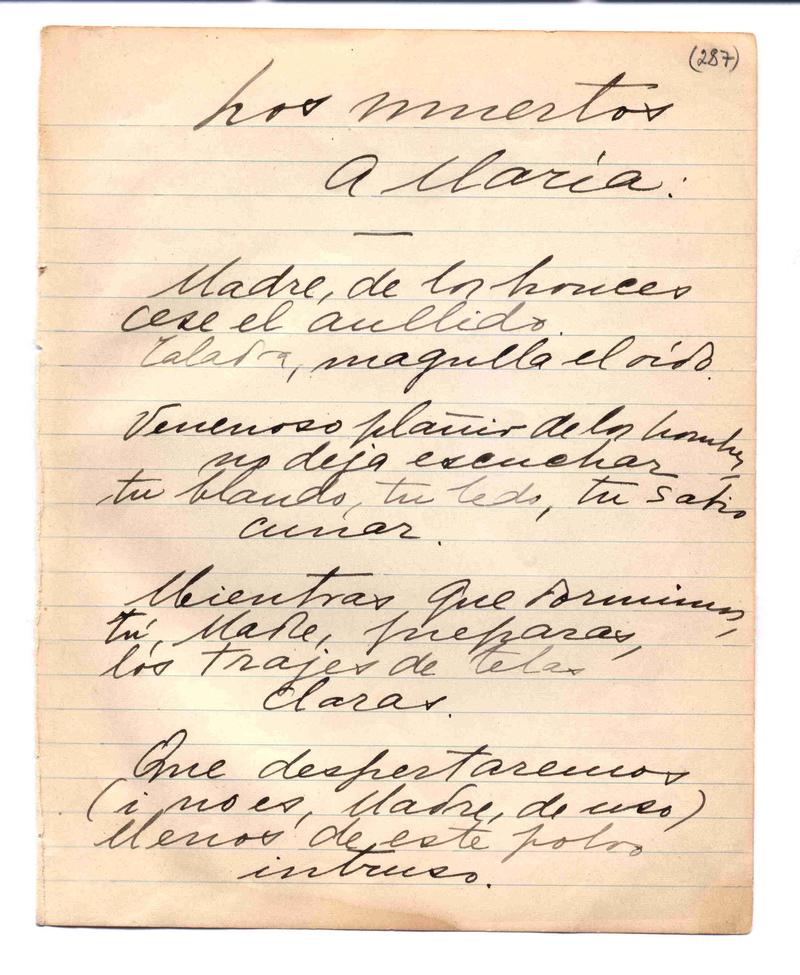 (287)
Los muertos
A María:
Madre, de los bronces
cese el aullido.
Taladra, magulla el oído.
Venenoso plañir de los hombres,
no deja escuchar
tu blando, tu ledo, tu sabio
cunar.
Mientras que dormimos,
tú, Madre, preparas,
los trajes de telas
claras.
Que despertaremos
(i no es, Madre, de uso)
llenos de este polvo
intruso.